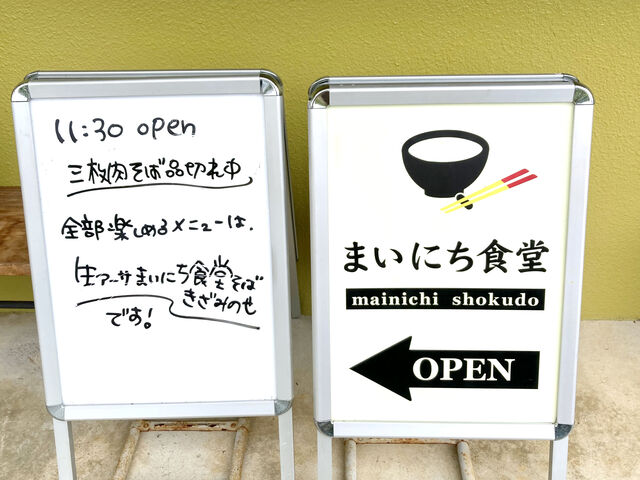 11:30 open
三枚肉そば品切れ中
全部楽しめるメニューは、
生アーサまいにち食堂そば
きざみのせ
です!
まいにち食堂
mainichi shokudo
OPEN